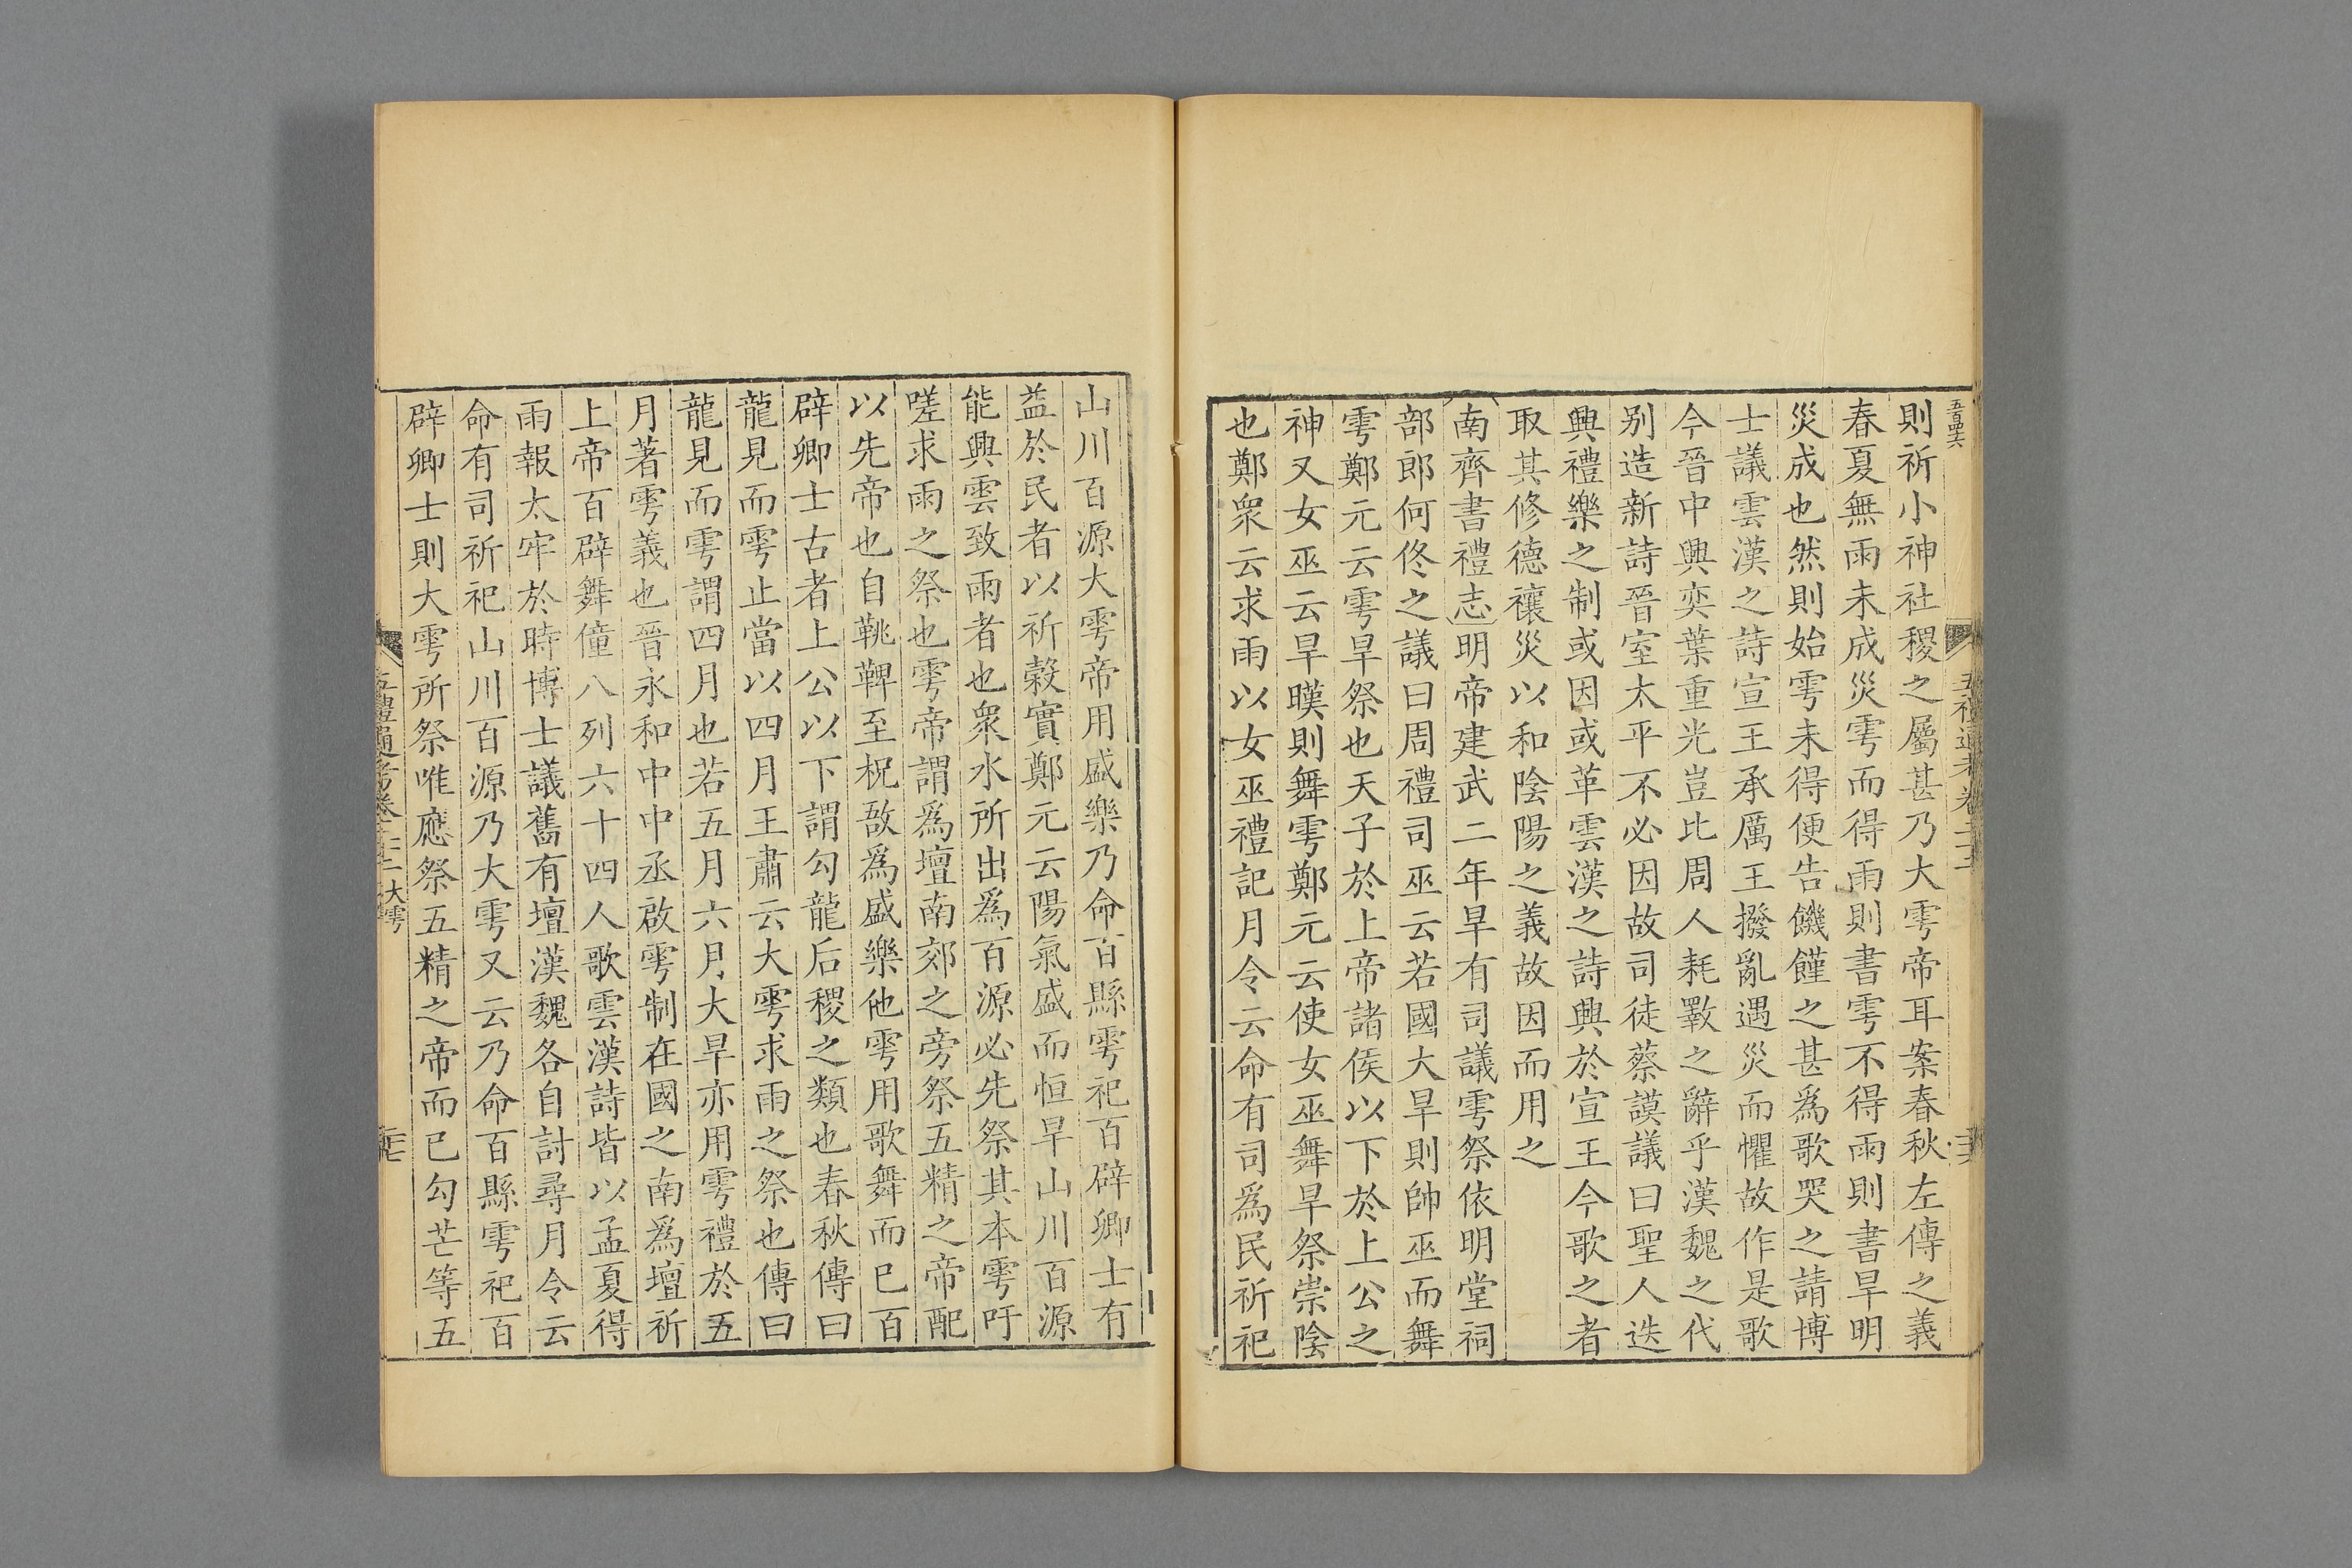 五百罕六
則祈小神社稷之屬甚乃大雩帝耳案春秋左傳之義
春夏無雨未成災雩而得雨則書雩不得雨則書旱明
災成也然則始雩未得便告饑饉之甚爲歌哭之請博
士議雲漢之詩宣王承厲王撥亂遇災而懼故作是歌
今晉中興奕葉重光豈比周人耗斁之辭乎漢魏之代
别造新詩晉室太平不必因故司徒蔡謨議曰聖人迭
興禮樂之制或因或革雲漢之詩興於宣王今歌之者
取其修德禳災以和陰陽之義故因而用之
南齊書禮志明帝建武二年旱有司議雩祭依明堂祠
部郎何佟之議曰周禮司巫云若國大旱則帥巫而舞
雩鄭元云雩旱祭也天子於上帝諸侯以下於上公之
神又女巫云旱暵則舞雩鄭元云使女巫舞旱祭崇陰
也鄭衆云求雨以女巫禮記月令云命有司爲民祈祀
山川百源大雩帝用盛樂乃命百縣雩祀百辟卿士有
益於民者以祈穀實鄭元云陽氣盛而恒旱山川百源
能興雲致雨者也衆水所出爲百源必先祭其本雩吁
嗟求雨之祭也雩帝謂爲壇南郊之旁祭五精之帝配
以先帝也自鞉鞞至柷敔爲盛樂他雩用歌舞而已百
辟卿士古者上公以下謂勾龍后稷之類也春秋傳曰
龍見而雩止當以四月王肅云大雩求雨之祭也傳曰
龍見而雩謂四月也若五月六月大旱亦用雩禮於五
月著雩義也晉永和中中丞啟雩制在國之南爲壇祈
上帝百辟舞僮八列六十四人歌雲漢詩皆以孟夏得
雨報太牢於時博士議舊有壇漢魏各自討尋月令云
命有司祈祀山川百源乃大雩又云乃命百縣雩祀百
辟卿士則大雩所祭唯應祭五精之帝而已勾芒等五
五禮通考卷二十二 大雩